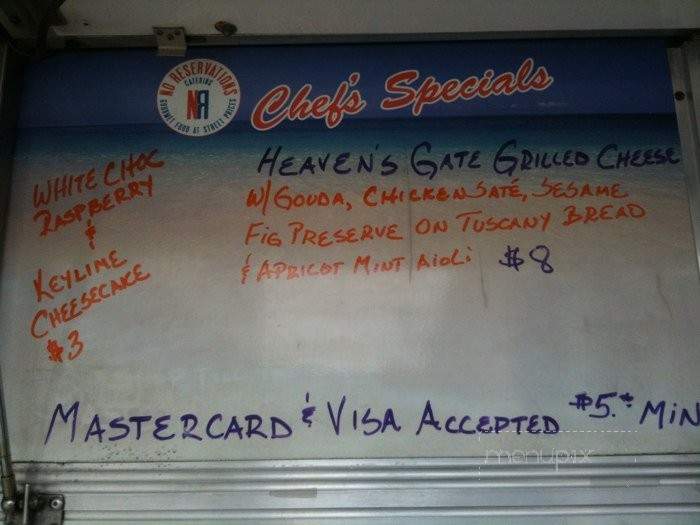 NO RESERVATIONS
CATERING
NR
GOURMET FOOD AT STREET PRICES
Chef's Specials
WHITE CHOC
RASPBERRY
&
KEYLIME
CHEESECAKE
$3
HEAVEN'S GATE GRILLED CHEESE
W/ GOUDA, CHICKEN SATÉ, SESAME
FIG PRESERVE ON TUSCANY BREAD
& APRICOT MINT AIOLI $8
MASTERCARD & VISA ACCEPTED $5.- MIN
menupix